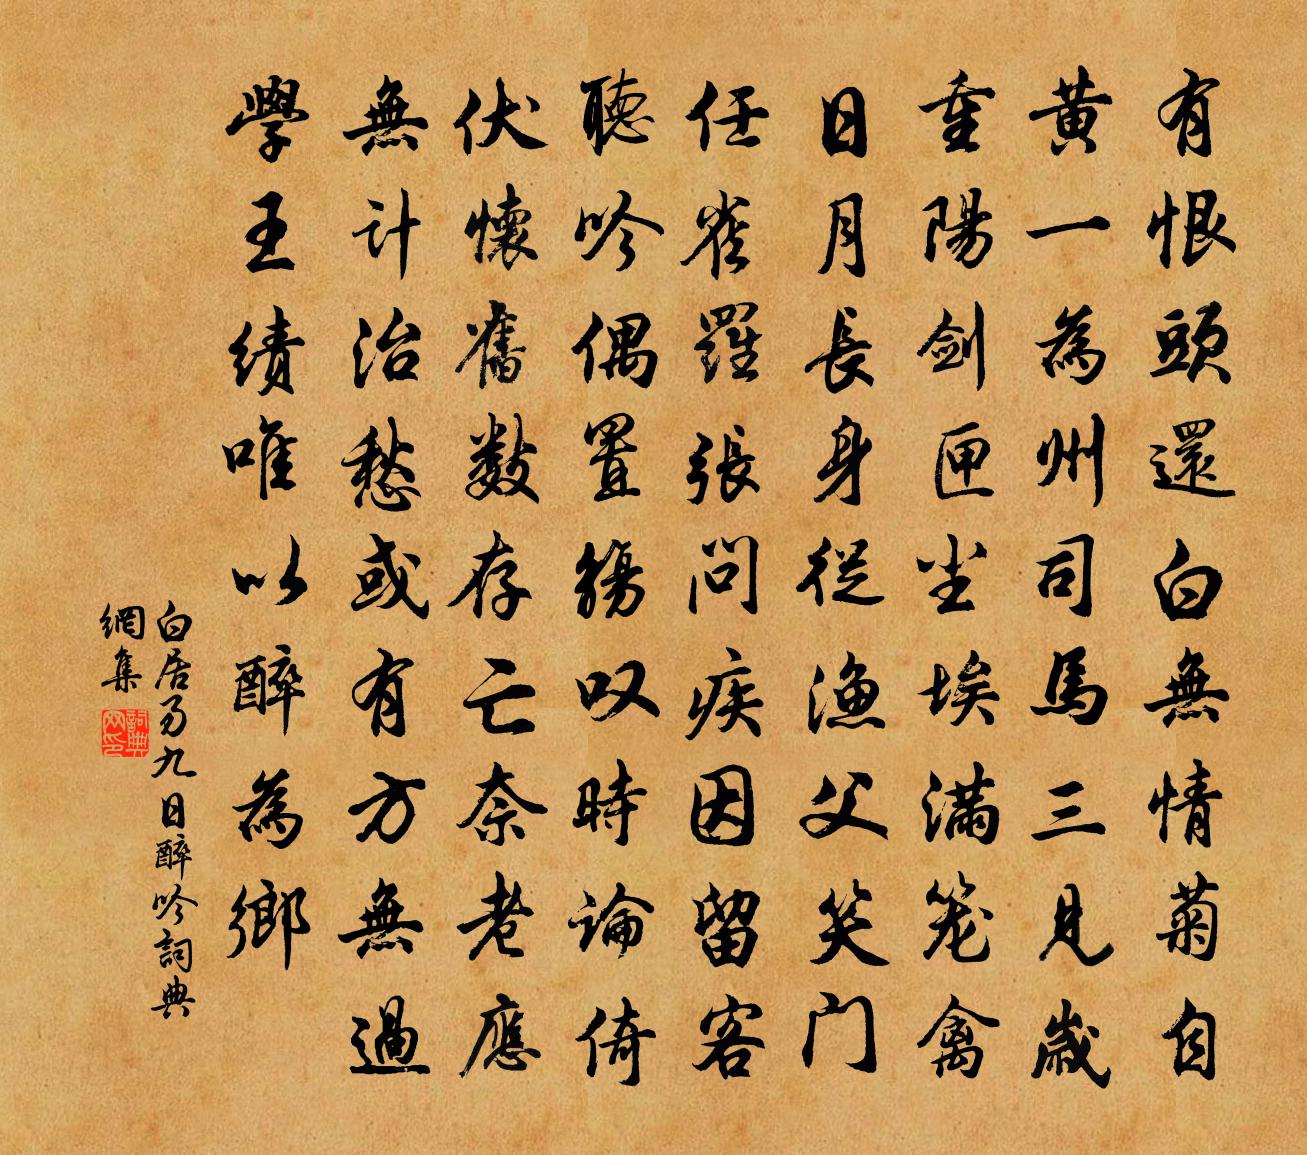 有恨頭還白無情菊自
黃一為州司馬三見歲
重陽劍匣尘埃滿笼禽
日月長身從漁父笑门
任雀羅張问疾因留客
聽吟偶置觴叹時論倚
伏懷舊數存亡奈老應
無计治愁或有方無過
學王績唯以醉為鄉
白居易九日醉吟詞典
網集
詞典
网印